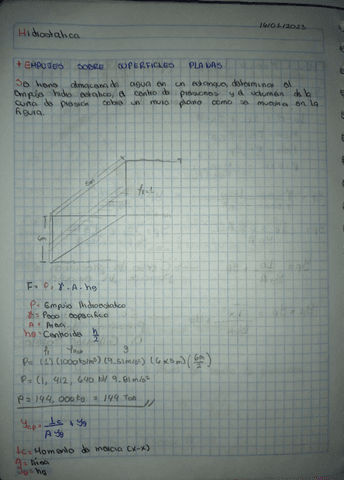 14/06/2023
Hidrostatica
* EMPUJES SOBRE SUPERFICIES PLANAS
Se tiene almacenado agua en un estanque determinar el
empuje hidrostatico, el centro de presiones y el volumen de la
cuña de presion sobre un muro plano como se muestra en la
figura.
8m
γr=1
6m
F = P = γ · A · hg
P = Empuje Hidrostatico
γ = Peso especifico
A = Area
hg = Centroide h/2
P= (1)(1000 kg/m³)(9.81m/s²)(6x8m)(6m/2)
P= (1, 412, 640 N/ 9.81 m/s²
P= 144, 000 kg = 144 Ton
Ycp = Ic / A Yg + Yg
Ic = Momento de inercia (x-x)
A = Area
Yg = hg